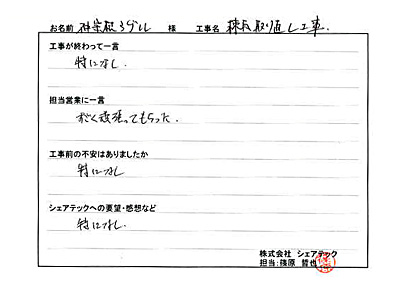 お名前 様 工事名 棟瓦取り直し工事.
工事が終わって一言
特になし.
担当営業に一言
よく頑張ってもらった.
工事前の不安はありましたか
特になし
シェアテックへの要望・感想など
特になし.
株式会社 シェアテック
担当:篠原 哲也